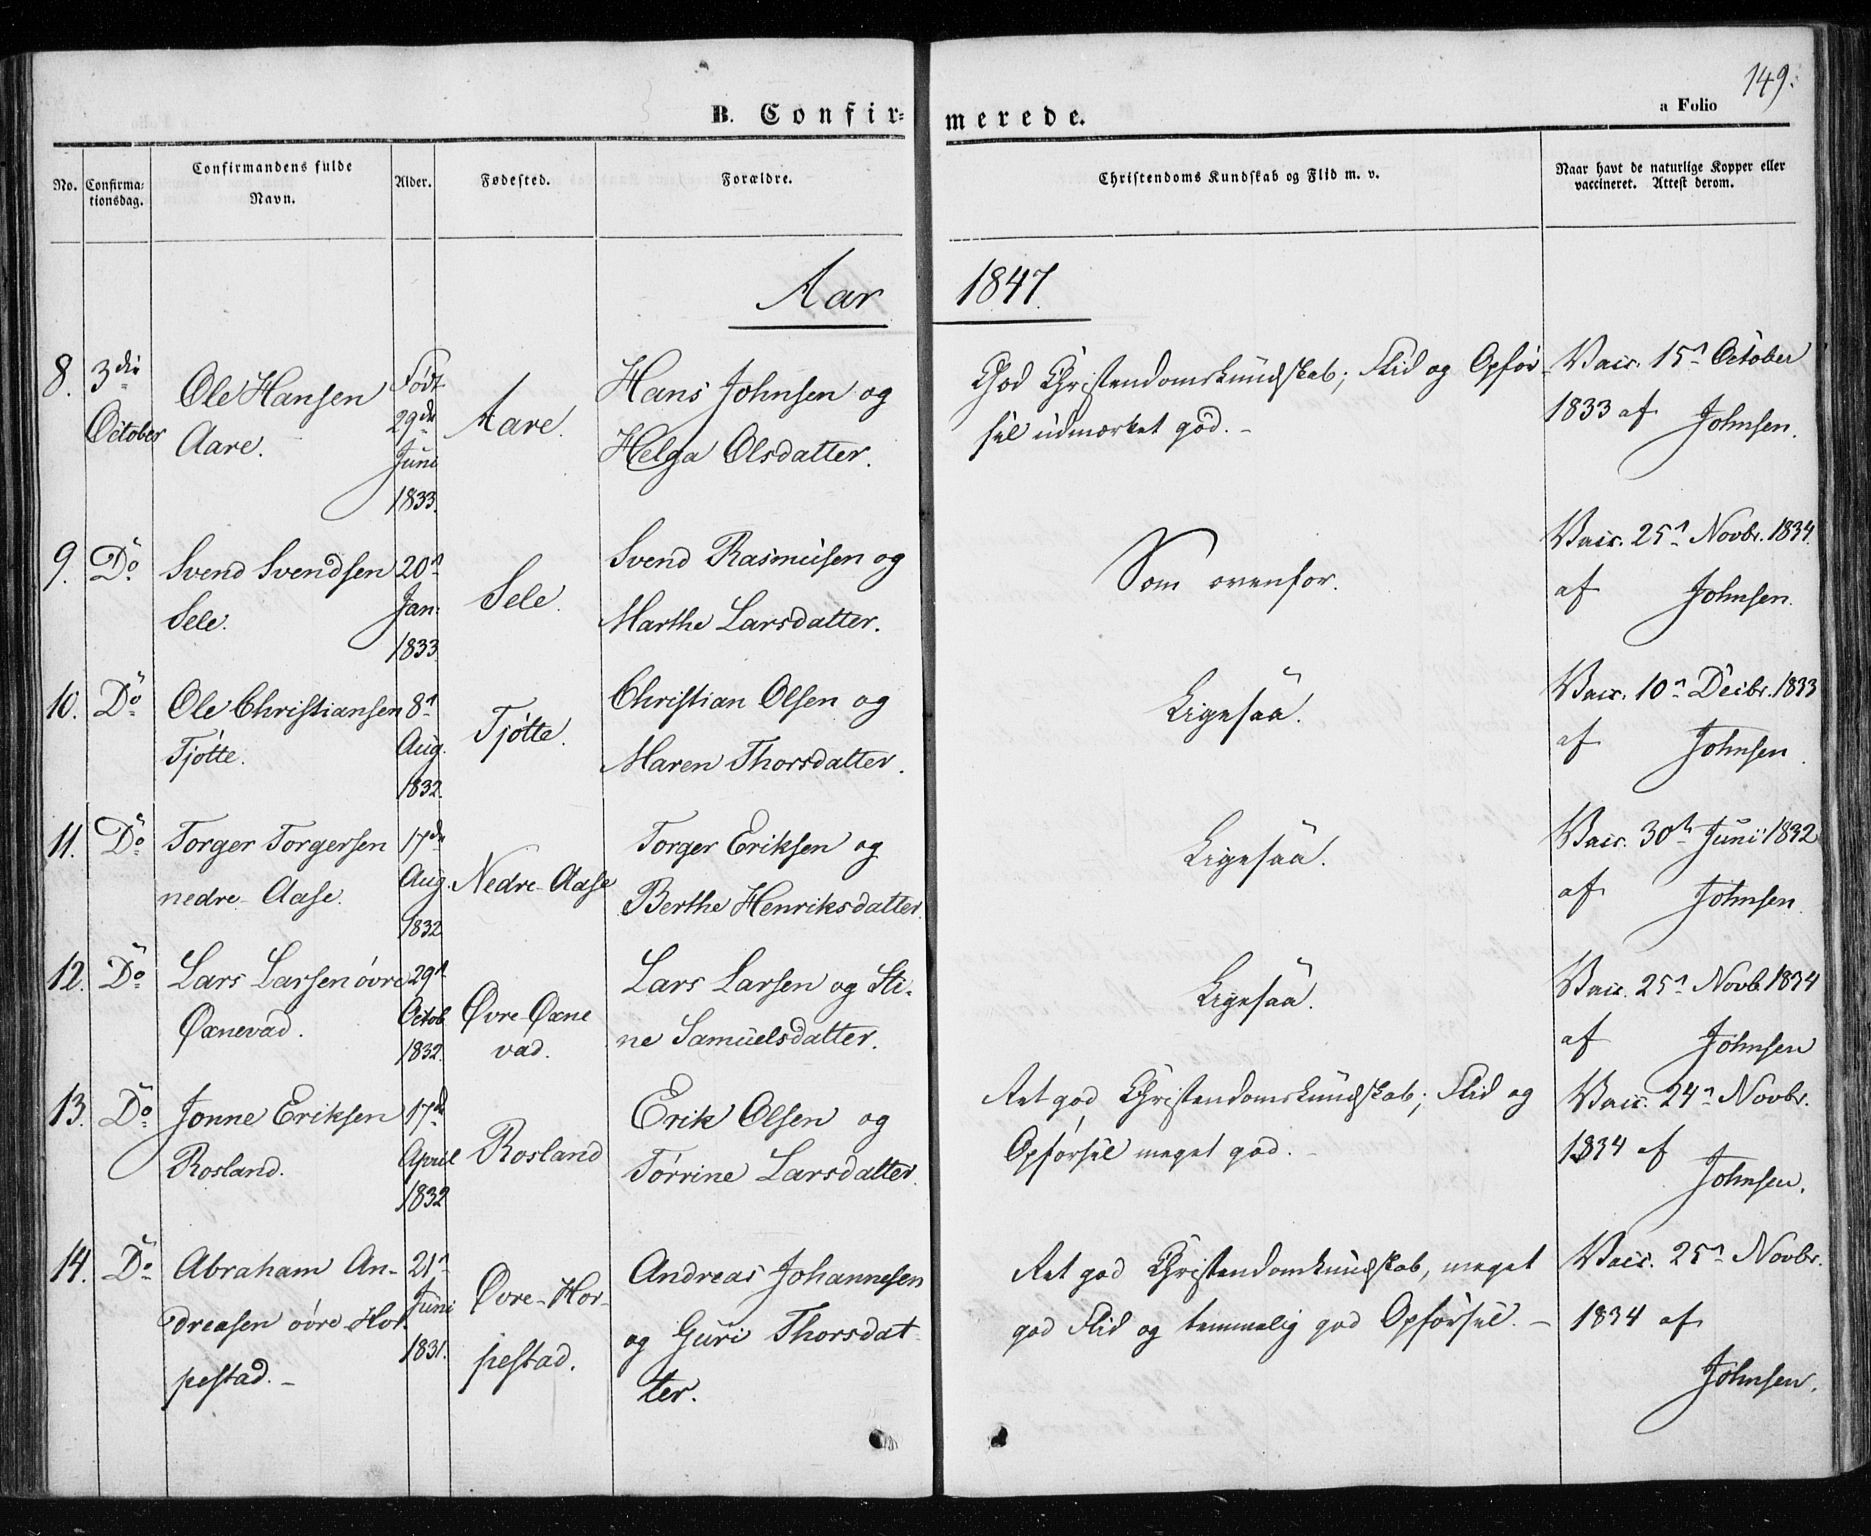 149.
a Folio
B. Confir-
merede.
No.
Confirma-
tionsdag.
Confirmandens fulde
Navn.
Alder.
Fødested.
Forældre.
Christendoms Kundskab og Flid m. v.
Naar havt de naturlige Kopper eller
vaccineret. Attest derom.
Aar 1847.
8.
3die
October
Ole Hansen
Aare.
Født
29de
Juni
1833.
Aare.
Hans Johnsen og
Helga Olsdatter.
God Christendomskundskab; Flid og Opfør-
sel udmærket god. -
Vacc. 15n October
1833 af Johnsen.
9.
Do
Svend Svendsen
Sele.
20n
Jan.
1833
Sele.
Svend Rasmusen og
Marthe Larsdatter.
Som ovenfor.
Vacc. 25n Novbr. 1834.
af Johnsen.
10.
Do
Ole Christiansen
Tjøtte.
8n
Aug.
1832.
Tjøtte.
Christian Olsen og
Maren Thorsdatter.
Ligesaa.
Vacc. 10n Decbr. 1833
af Johnsen.
11.
Do
Torger Torgersen
nedre Aase.
17de
Aug.
1832
Nedre-Aase
Torger Eriksen og
Berthe Henriksdatter.
Ligesaa.
Vacc. 30te Juni 1832
af Johnsen.
12.
Do
Lars Larsen øvre
Oxnevad.
29n
Octob
1832.
Øvre-Oxne
vad.
Lars Larsen og Sti-
ne Samuelsdatter.
Ligesaa.
Vacc. 25n Novb. 1834
af Johnsen
13.
Do
Jonne Eriksen
Rosland.
17de
April
1832
Rosland
Erik Olsen og
Tørrine Larsdatter.
Ret god Christendomskundskab; Flid og
Opførsel meget god. -
Vacc. 24n Novbr.
1834 af
Johnsen.
14.
Do
Abraham An-
dreasen øvre Hor-
pestad. -
21n
Juni
1831.
Øvre-Hor-
pestad.
Andreas Johannesen
og Guri Thorsdat-
ter.
Ret god Christendomkundskab, meget
god Flid og temmelig god Opførsel. -
Vacc. 25n Novbr.
1834 af
Johnsen.